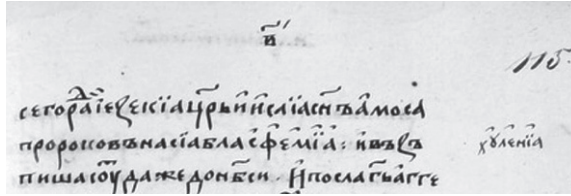 н҃
115.
сего ра́ⷣ іезекїа цр҃ь и҆ исаїа сн҃ъ а҆моса
пророковъ на сїа бласфемїа҆: и҆ въз
хꙋленїа
пиша соу҆ да же до нб҃си. И҆ посла гь҃ агге